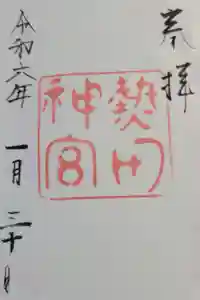 奉拝
熱田
神宮
令和六年
一月三十日